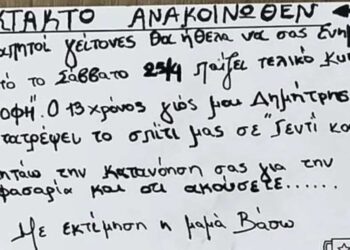 ΚΤΑΚΤΟ ΑΝΑΚΟΙΝΩΘΕΝ
απητοί γείτονες θα ήθελα να σας ενη
τό το Σάββατο 25/4 παίζει τελικό Κυπ
οφή". Ο 13χρόνος γιός μου Δημήτρης
τατρέψει το σπίτι μας σε "Γεντί κου
ητάω την κατανόηση σας για την
φασαρία και ότι ακούσετε......
Με εκτέμηση η μαμά Βάσω